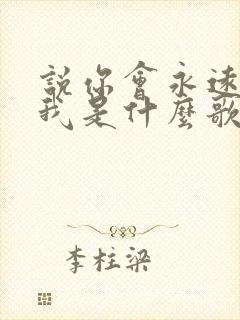 說你會永遠
我是什麼歌
李柱梁